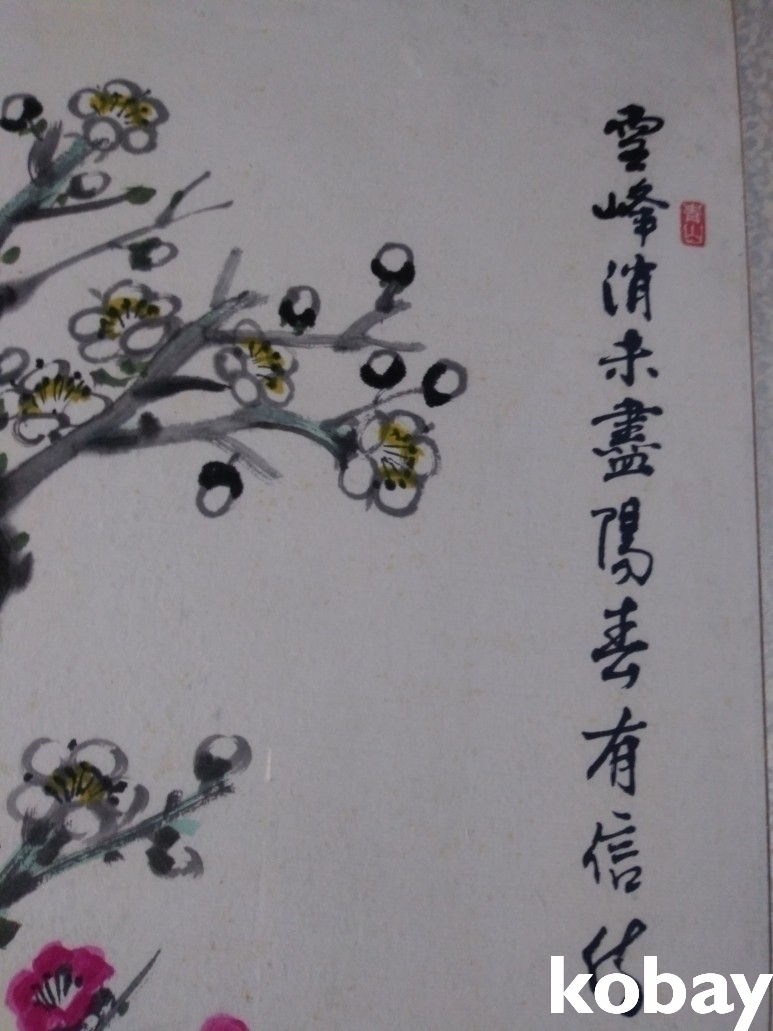 雪峰消未盡陽春有信
青山
kobay